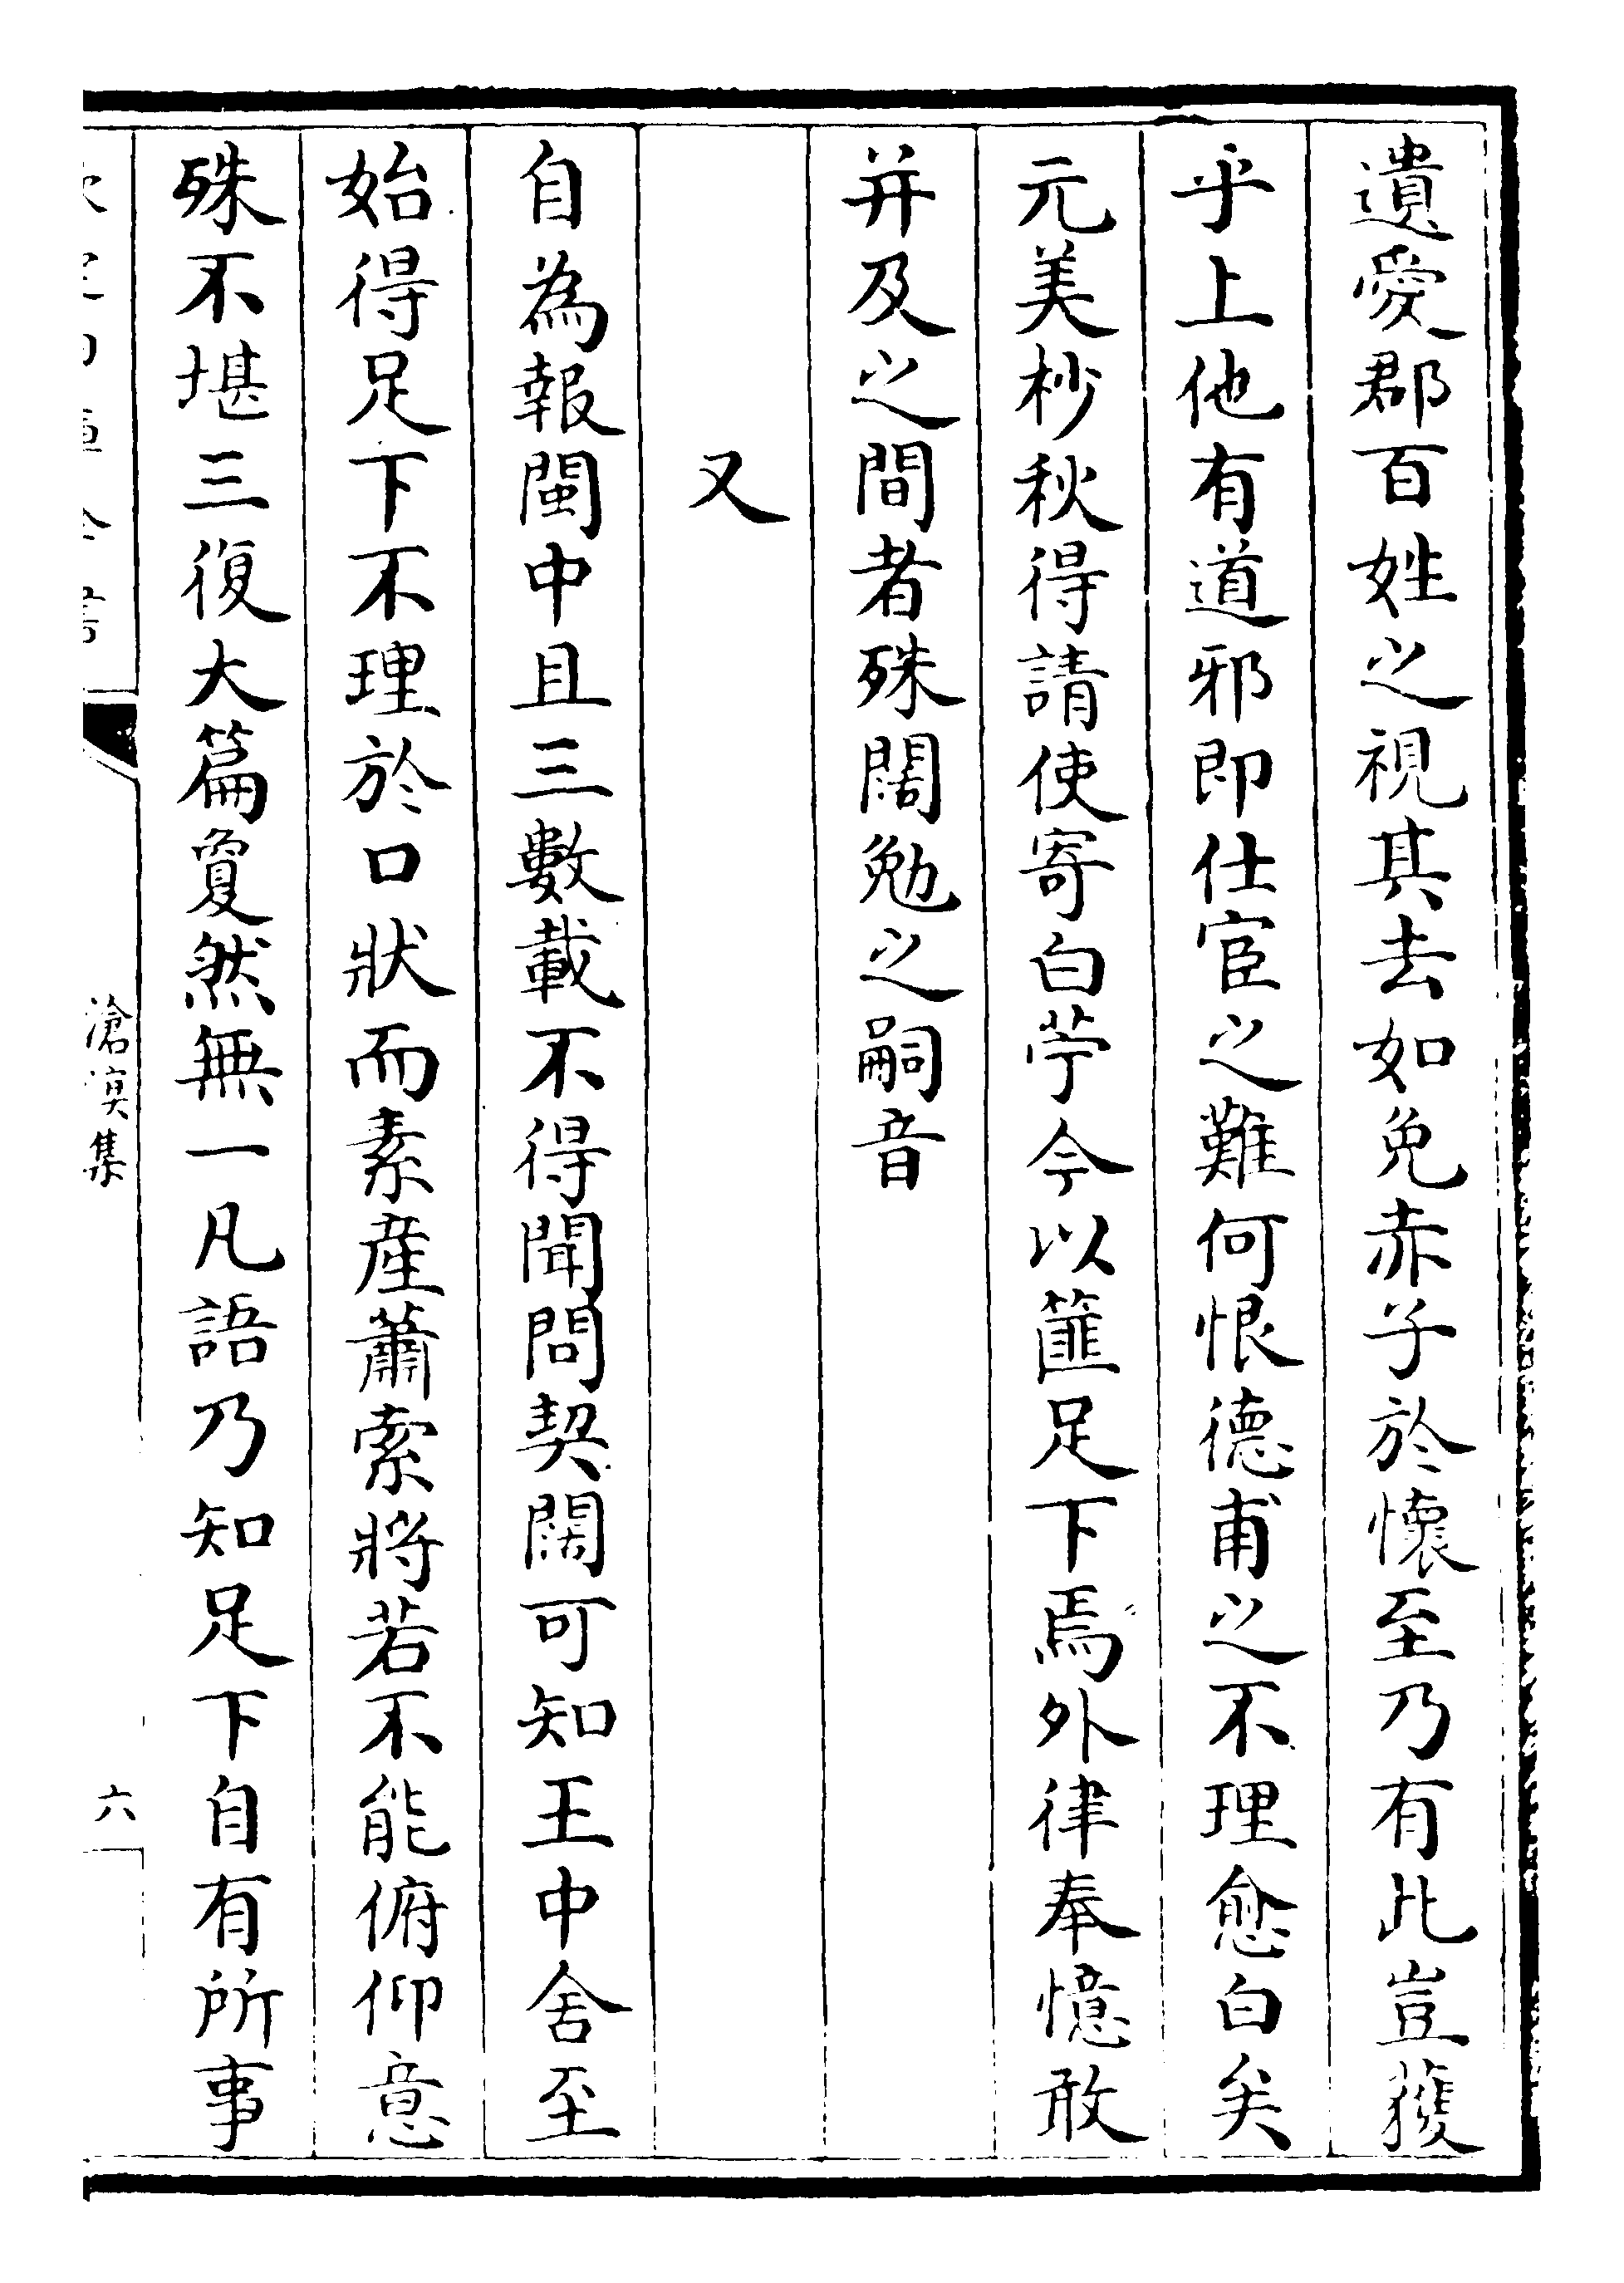 遺愛郡百姓之視其去如免赤子於懷至乃有此豈獲
乎上他有道邪即仕宦之難何恨德甫之不理愈白矣
元美杪秋得請使寄白苧今以篚足下焉外律奉憶敢
并及之間者殊闊勉之嗣音
又
自為報閩中且三數載不得聞問契闊可知王中舍至
始得足下不理於口狀而素産蕭索將若不能俯仰意
殊不堪三復大篇敻然無一凡語乃知足下自有所事
滄溟集
六